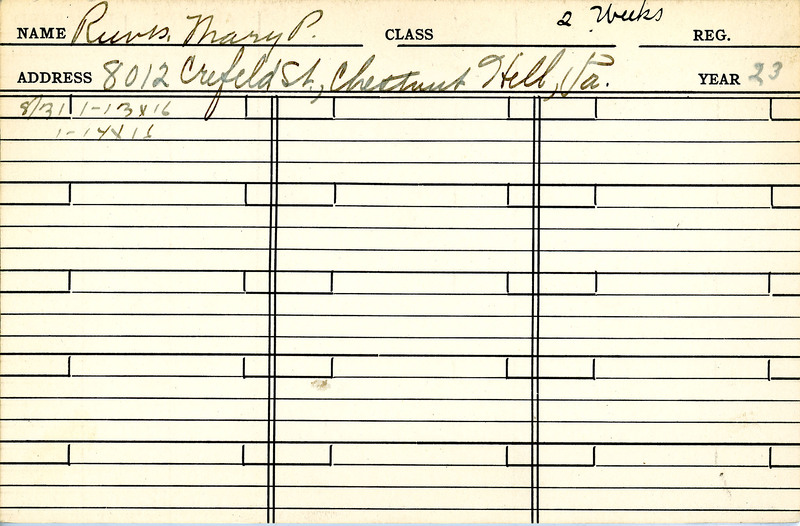 NAME Reeves, Mary P. CLASS 2 Weeks REG.
ADDRESS 8012 Crefeld St., Chestnut Hill, Pa. YEAR 23
8/31 1-13x16
1-14x15